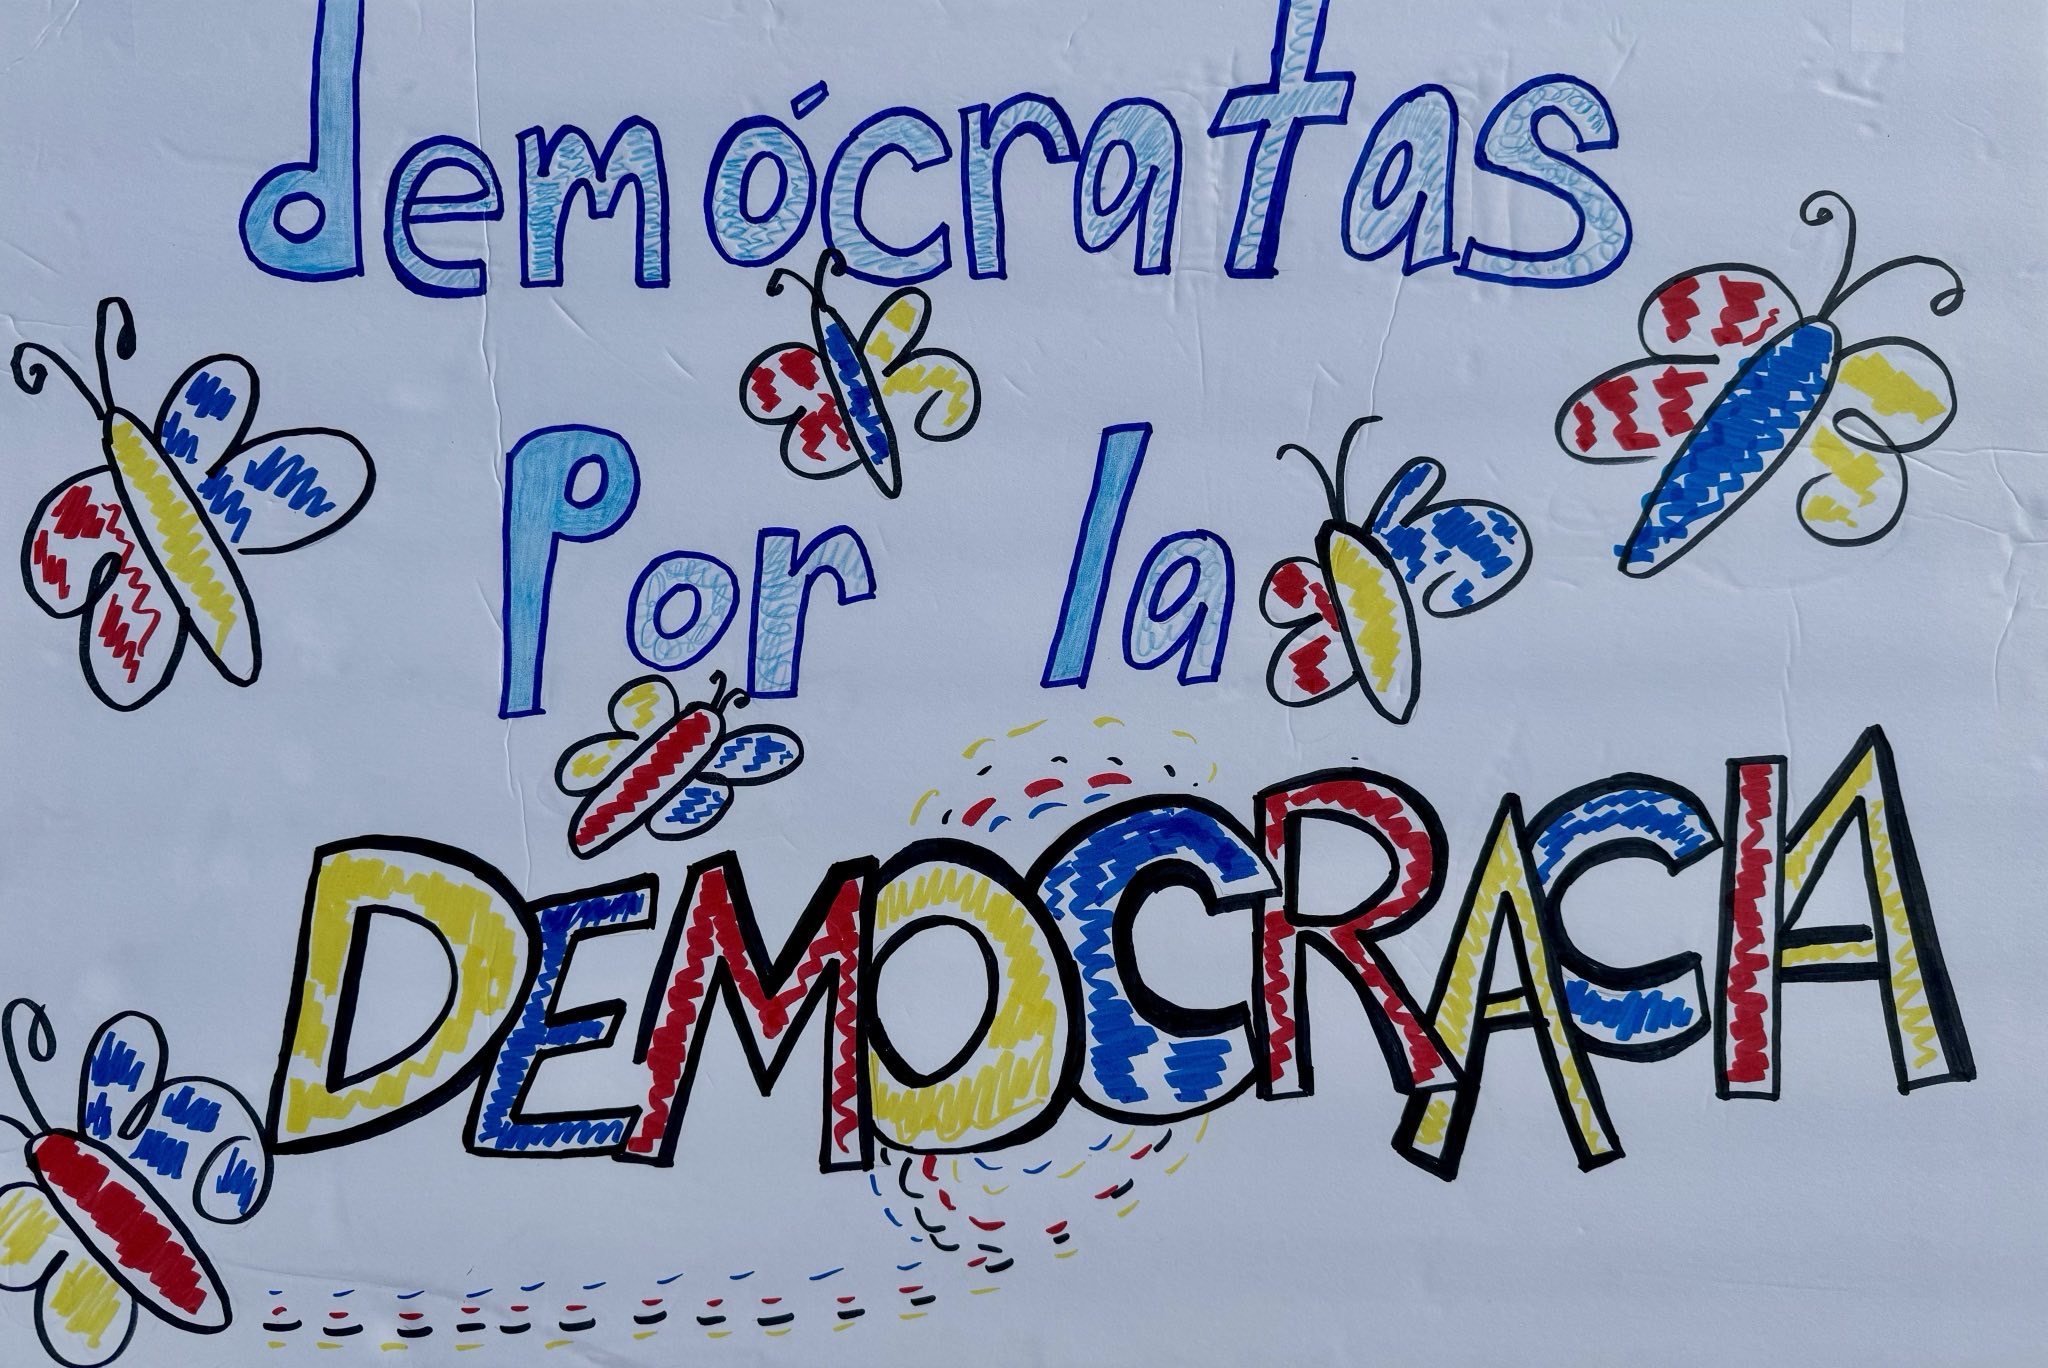 demócratas
Por la
DEMOCRACIA